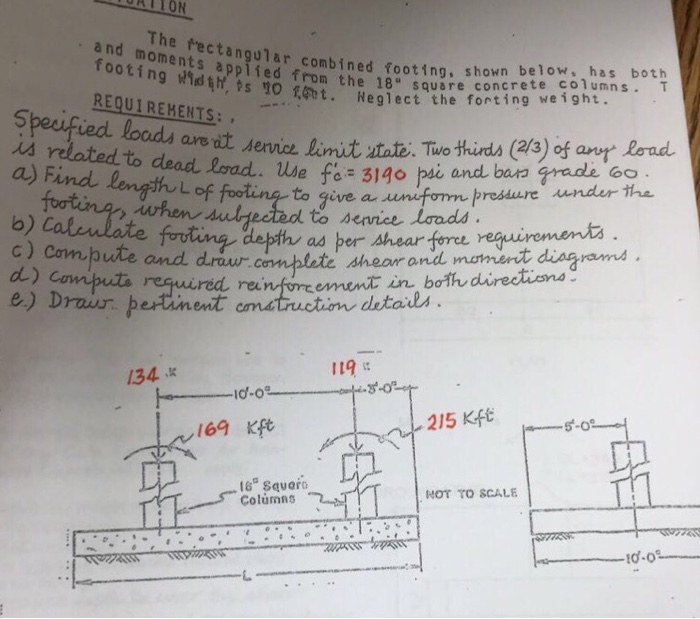 The rectangular combined footing, shown below, has both
and moments applied from the 18" square concrete columns. T
footing width, is 10 feet. Neglect the footing weight.
REQUIREMENTS:
Specified loads are at service limit state. Two thirds (2/3) of any load
is related to dead load. Use f'c = 3190 psi and bars grade 60.
a) Find length L of footing to give a uniform pressure under the
footing, when subjected to service loads.
b) Calculate footing depth as per shear force requirements.
c) Compute and draw complete shear and moment diagrams.
d) Compute required reinforcement in both directions.
e) Draw pertinent construction details.
134 K
119 K
10'-0"
3'-0"
169 Kft
215 Kft
5'-0"
18" Square
Columns
NOT TO SCALE
L
10'-0"